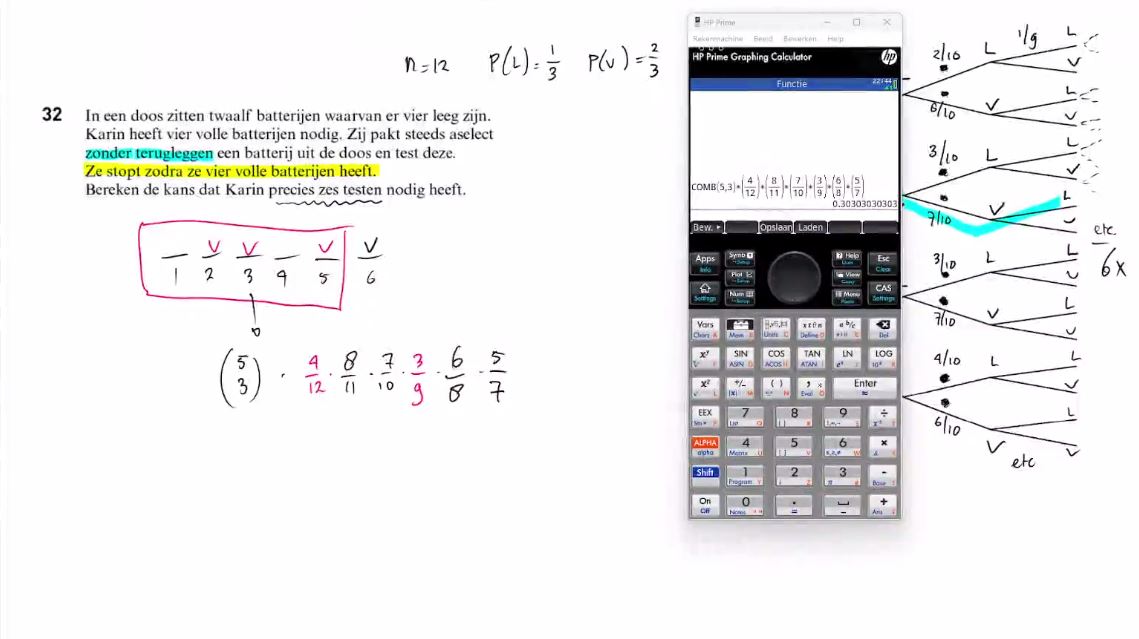 n=12 P(L)=1/3 P(V)=2/3
32 In een doos zitten twaalf batterijen waarvan er vier leeg zijn.
Karin heeft vier volle batterijen nodig. Zij pakt steeds aselect
zonder terugleggen een batterij uit de doos en test deze.
Ze stopt zodra ze vier volle batterijen heeft.
Bereken de kans dat Karin precies zes testen nodig heeft.
V V V V
1 2 3 4 5 6
6
(5 3) · 4/12 · 8/11 · 7/10 · 3/9 · 6/8 · 5/7
HP Prime
Rekenmachine Beeld Bewerken Help
HP Prime Graphing Calculator
hp
Functie
COMB(5,3)*(4/12)*(8/11)*(7/10)*(3/9)*(6/8)*(5/7)
0.30303030303
Bew. Opslaan Laden
Apps Info Symb Plot Num Help View Menu Esc CAS
Settings Settings
Vars a b/c Del
SIN COS TAN LN LOG
+/- ( ) , Enter
EEX 7 8 9 ÷
ALPHA alpha 4 5 6 ×
Shift 1 2 3 -
On Off 0 . +
2/10 L 1/9 L
V
6/10 V L
V
3/10 L L
V
7/10 V L
V
etc
6x
3/10 L L
V
7/10 V L
V
4/10 L L
V
6/10 V L
V
etc